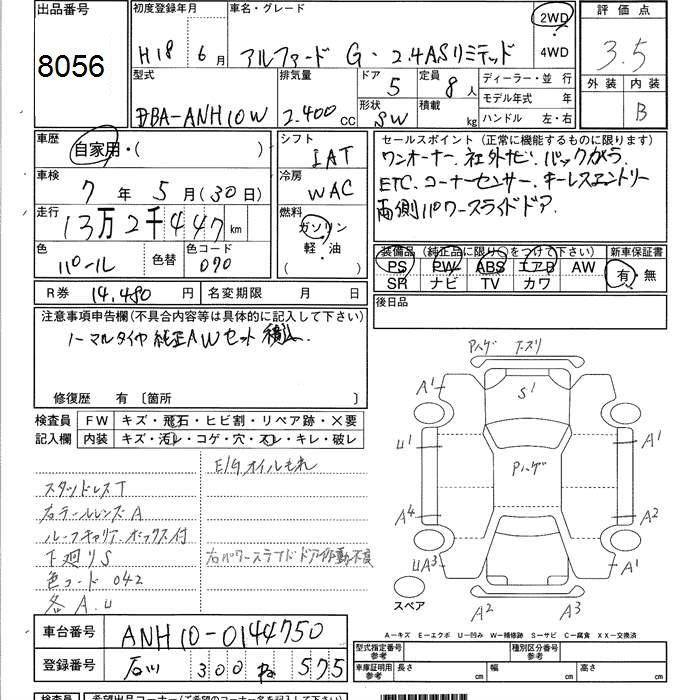 出品番号
8056
初度登録年月
H18 6月
車名・グレード
アルファード G・2.4ASリミテッド
2WD
4WD
評価点
3.5
外装 内装
B
型式
DBA-ANH10W
排気量
2.400cc
ドア
5
形状
SW
定員
8人
積載
kg
ディーラー・並行
モデル年式 年
ハンドル 左・右
車歴
自家用・( )
車検
7年5月(30日)
走行
13万2千447km
色
パール
色替
色コード
070
シフト
IAT
冷房
WAC
燃料
ガソリン
軽・油
( )
セールスポイント(正常に機能するものに限ります)
ワンオーナー. 社外ナビ. バックカメラ.
ETC. コーナーセンサー. キーレスエントリー
両側パワースライドドア.
装備品(純正品に限り○をつけて下さい)
PS PW ABS エアB AW
SR ナビ TV カワ
新車保証書
有・無
R券 14.480円
名変期限 月 日
後日品
注意事項申告欄(不具合内容等は具体的に記入して下さい)
ノーマルタイヤ純正AWセット積込.
修復歴 有 〔箇所 〕
検査員
記入欄
FW キズ・飛石・ヒビ割・リペア跡・X要
内装 キズ・汚レ・コゲ・穴・スレ・キレ・破レ
E/Gオイルもれ
スタッドレスT
右テールレンズA
ルーフキャリア. ボックス付
下廻りS
右パワースライドドア作動不良
色コード 042
各A.U
Pハゲ
A1
S1
U1
A1
Pハゲ
A4
A2
UA3
A1
スペア
A2
A3
A-キズ E-エクボ U-凹み W-補修跡 S-サビ C-腐食 XX-交換済
車台番号
ANH10-0144750
登録番号
石川 300 ね 575
型式指定番号
参考
種別区分番号
参考
車庫証明用
参考
長さ cm
幅 cm
高さ cm
検査員
希望出品コーナー(ご希望のコーナー名を記入して下さい)